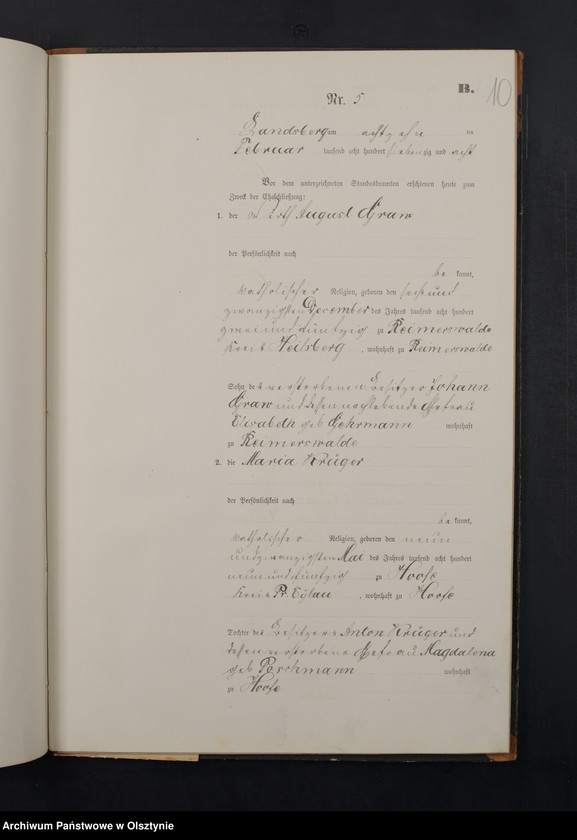 B. 10
Nr. 5
Landsberg am achtzehn ten
Februar tausend acht hundert siebenzig und acht
Vor dem unterzeichneten Standesbeamten erschienen heute zum
Zweck der Eheschließung:
1. der August Graw
der Persönlichkeit nach
be kannt,
katholischer Religion, geboren den sechsund
zwanzigsten December des Jahres tausend acht hundert
zweiundfünfzig zu Reimerswalde
Kreis Heilsberg, wohnhaft zu Reimerswalde
Sohn des verstorbenen Besitzer Johann
Graw und dessen nachlebende Ehefrau
Elisabeth geb Gehrmann wohnhaft
zu Reimerswalde
2. die Maria Krüger
der Persönlichkeit nach
be kannt,
katholischer Religion, geboren den neun
undzwanzigsten Mai des Jahres tausend acht hundert
neunundfünfzig zu Hoofe
Kreis Pr. Eylau, wohnhaft zu Hoofe
Tochter des Besitzers Anton Krüger und
dessen verstorbene Ehefrau Magdalena
geb Poschmann wohnhaft
zu Hoofe
Archiwum Państwowe w Olsztynie